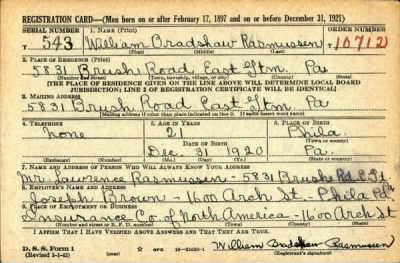 REGISTRATION CARD—(Men born on or after February 17, 1897 and on or before December 31, 1921)
SERIAL NUMBER 1. NAME (Print) ORDER NUMBER
T 543 William Bradshaw Rasmussen T10712
(First) (Middle) (Last)
2. PLACE OF RESIDENCE (Print)
5831 Brush Road East Gtm. Pa
(Number and street) (Town, township, village, or city) (County) (State)
[THE PLACE OF RESIDENCE GIVEN ON THE LINE ABOVE WILL DETERMINE LOCAL BOARD
JURISDICTION; LINE 2 OF REGISTRATION CERTIFICATE WILL BE IDENTICAL]
3. MAILING ADDRESS
5831 Brush Road East Gtm Pa
(Mailing address if other than place indicated on line 2. If same insert word same)
4. TELEPHONE 5. AGE IN YEARS 6. PLACE OF BIRTH
None 21 Phila.
DATE OF BIRTH (Town or county)
Dec. 31 1920 Pa.
(Exchange) (Number) (Mo.) (Day) (Yr.) (State or country)
7. NAME AND ADDRESS OF PERSON WHO WILL ALWAYS KNOW YOUR ADDRESS
Mr. Lawrence Rasmussen - 5831 Brush Rd.
8. EMPLOYER'S NAME AND ADDRESS
Joseph Brown - 1600 Arch St - Phila Pa
9. PLACE OF EMPLOYMENT OR BUSINESS
Insurance Co. of North America - 1600 Arch St
(Number and street or R. F. D. number) (Town) (County) (State)
I AFFIRM THAT I HAVE VERIFIED ABOVE ANSWERS AND THAT THEY ARE TRUE.
D. S. S. Form 1 GPO William Bradshaw Rasmussen
(Revised 1-1-42) (Registrant's signature)